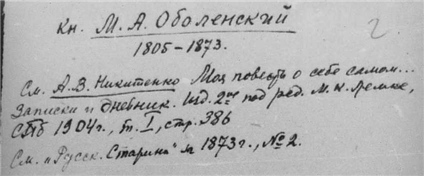 кн. М. А. Оболенский
2.
1805–1873.
См. А. В. Никитенко Моя повесть о себе самом...
Записки и дневник. Изд. 2ое под ред. М. К. Лемке,
СПб 1904г., т. I, стр. 386
См. „Русск. Старина" за 1873г., № 2.